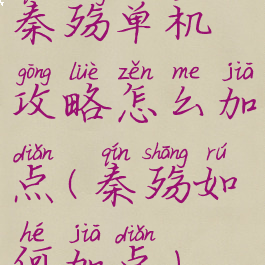 秦殇单机
gōng lüè zěn me jiā
攻略怎么加
diǎn qín shāng rú
点(秦殇如
hé jiā diǎn
何加点)